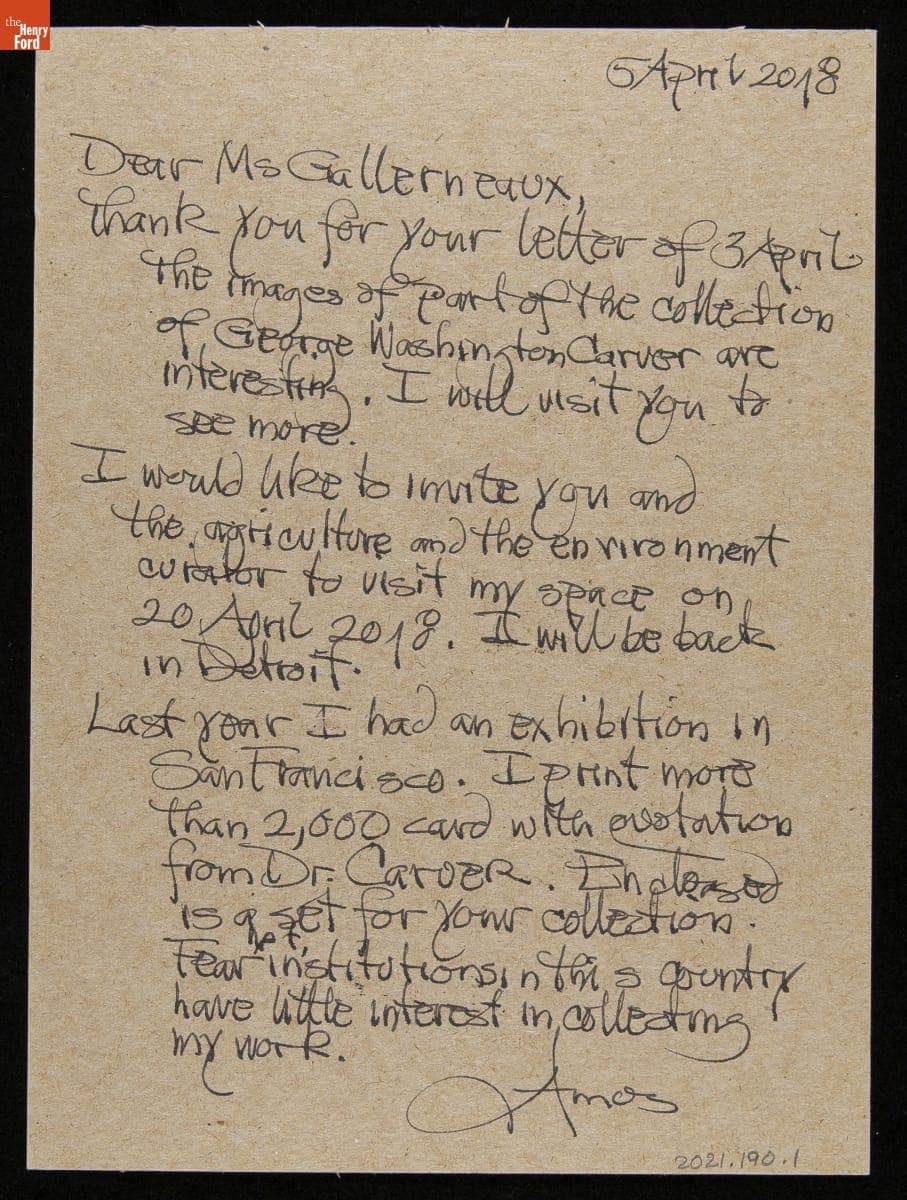 the
Henry
Ford
5 April 2018
Dear Ms Gallerneaux,
Thank you for your letter of 3 April.
The images of part of the collection
of George Washington Carver are
interesting. I will visit you to
see more.
I would like to invite you and
the agriculture and the environment
curator to visit my space on
20 April 2018. I will be back
in Detroit.
Last year I had an exhibition in
San Francisco. I print more
than 2,000 card with quotation
from Dr. Carver. Enclosed
is a set for your collection.
Fear not,
institutions in this country
have little interest in collecting
my work.
Amos
2021.190.1